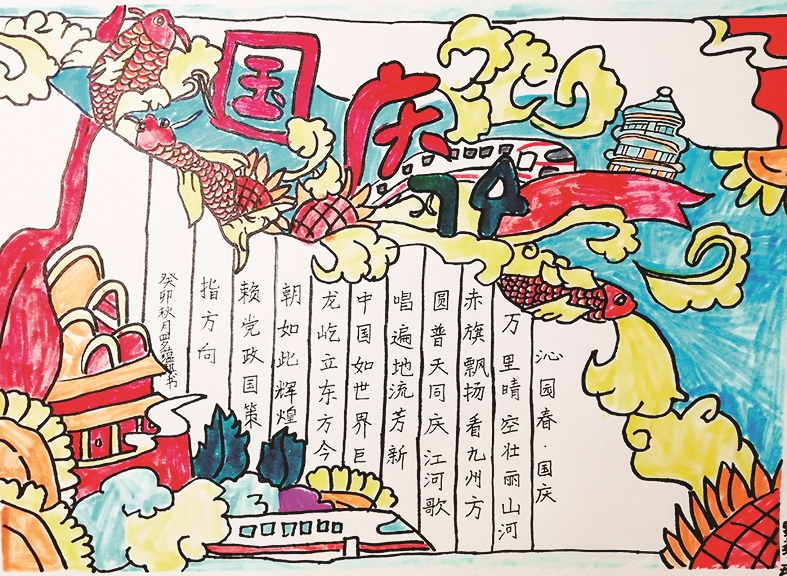 国庆
74
沁园春·国庆
万里晴空壮丽山河
赤旗飘扬看九州方
圆普天同庆江河歌
唱遍地流芳新
中国如世界巨
龙屹立东方今
朝如此辉煌
赖党政国策
指方向
癸卯秋月罗蕴书